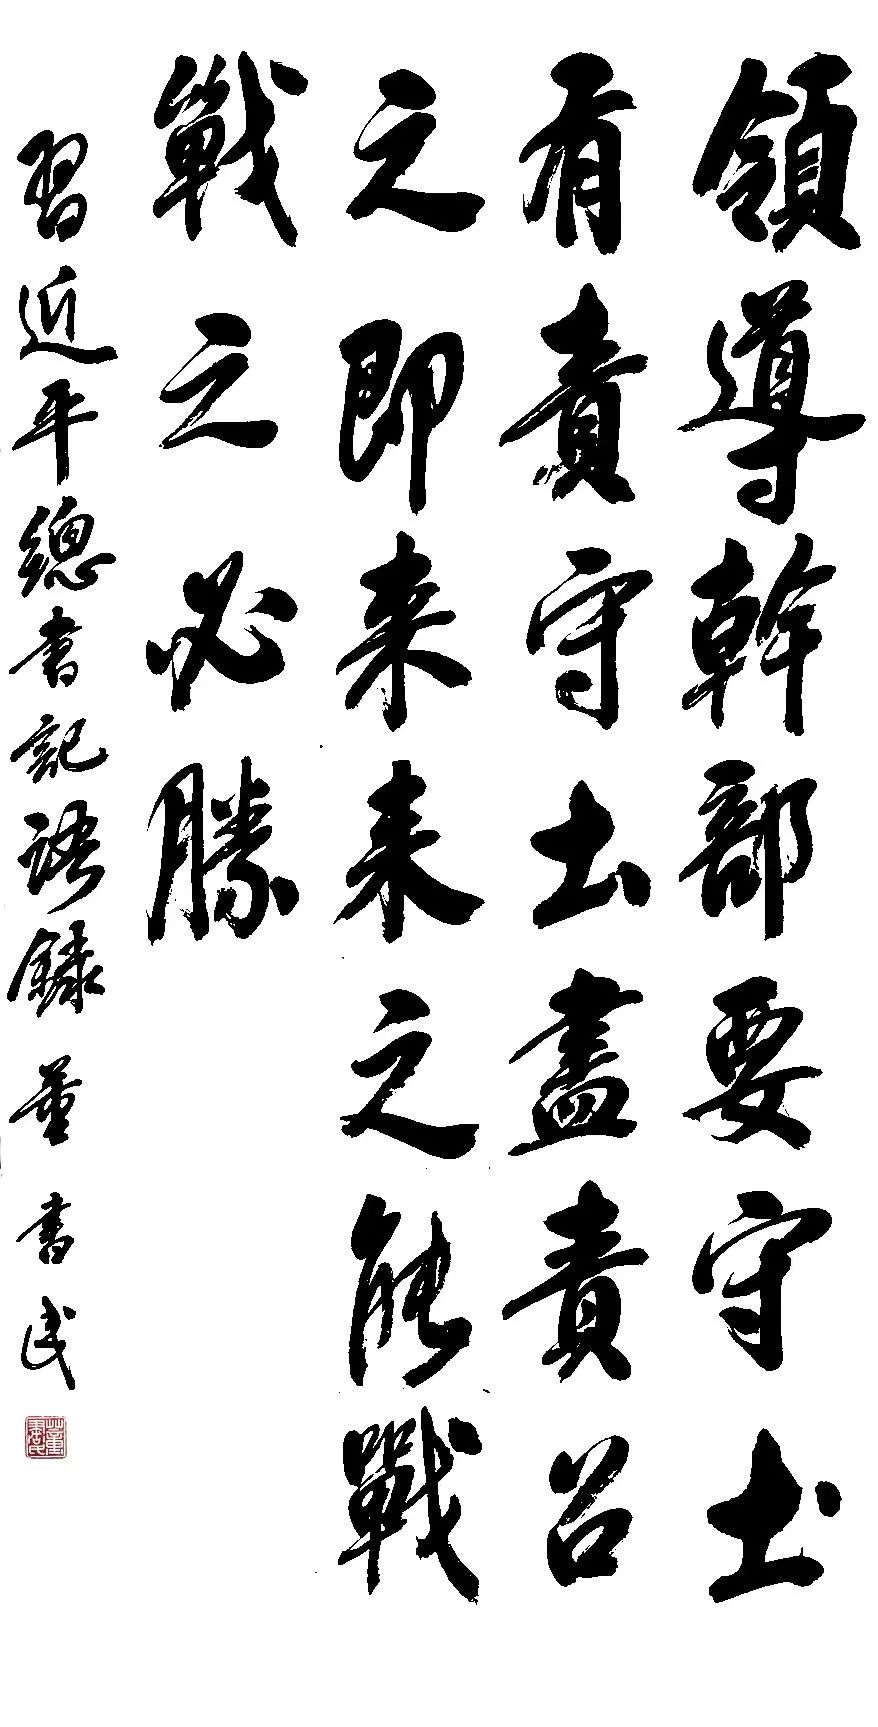 領導幹部要守土
有責守土盡責召
之即来来之能戰
戰之必勝
習近平總書記語録 董書民